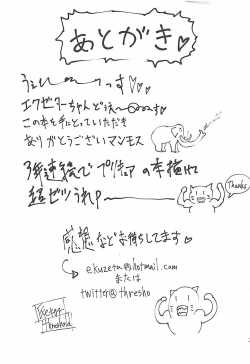 あとがき♡
エクゼターちゃんどぅえ〜す
この本を手にとっていただき
ありがとうございマンモス
3年連続でプリキュアの本描けて
超ゼツうれP
Thanks
感想などお待ちしてます♡
ekuzeta@hotmail.com
または
twitter@thresho